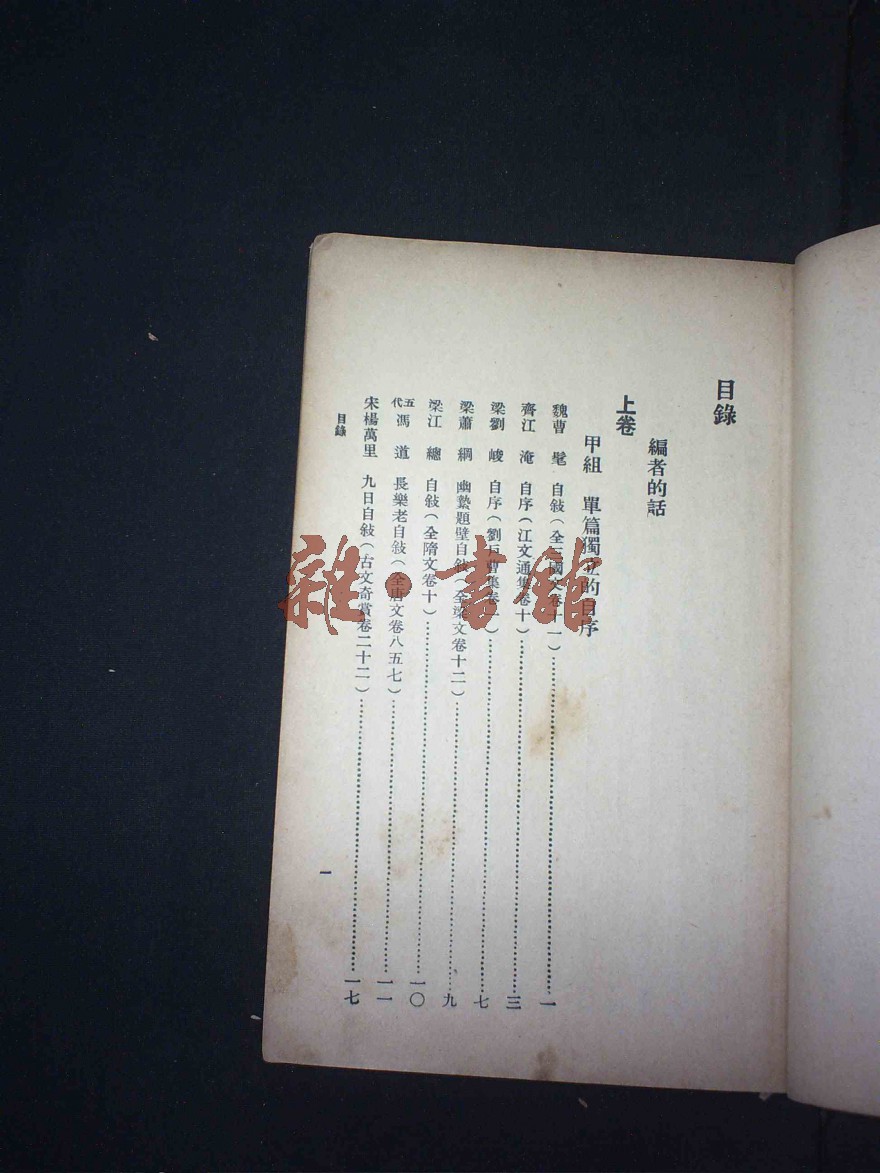 目錄
編者的話
上卷
甲組 單篇獨立的自序
魏曹髦 自敍(全三國文卷十一)…………一
齊江淹 自序(江文通集卷十)…………三
梁劉峻 自序(劉戶曹集卷一)…………七
梁蕭綱 幽縶題壁自敍(全梁文卷十二)…………九
梁江總 自敍(全隋文卷十)…………一〇
五代馮道 長樂老自敍(全唐文卷八五七)…………一一
宋楊萬里 九日自敍(古文奇賞卷二十二)…………一七
目錄
一
雜·書館